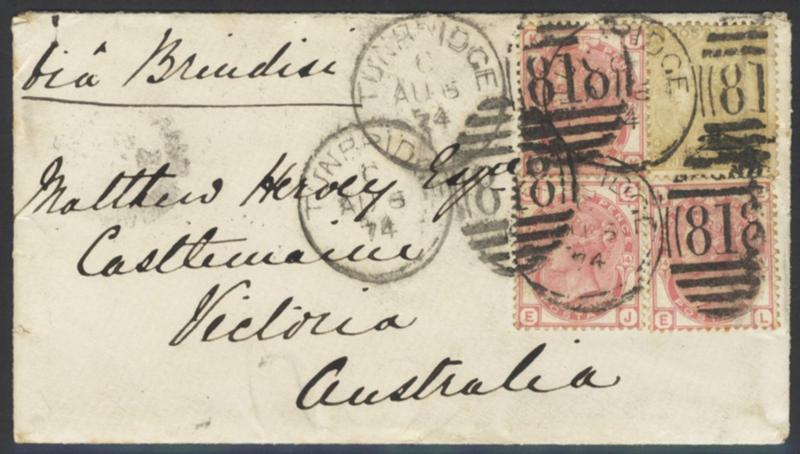 viâ Brindisi
TUNBRIDGE
C
AU 5
74
TUNBRIDGE
C
AU 5
74
Matthew Hervey Esqre
Castlemaine
Victoria
Australia
818
81
818
818
PENCE
E J
E L